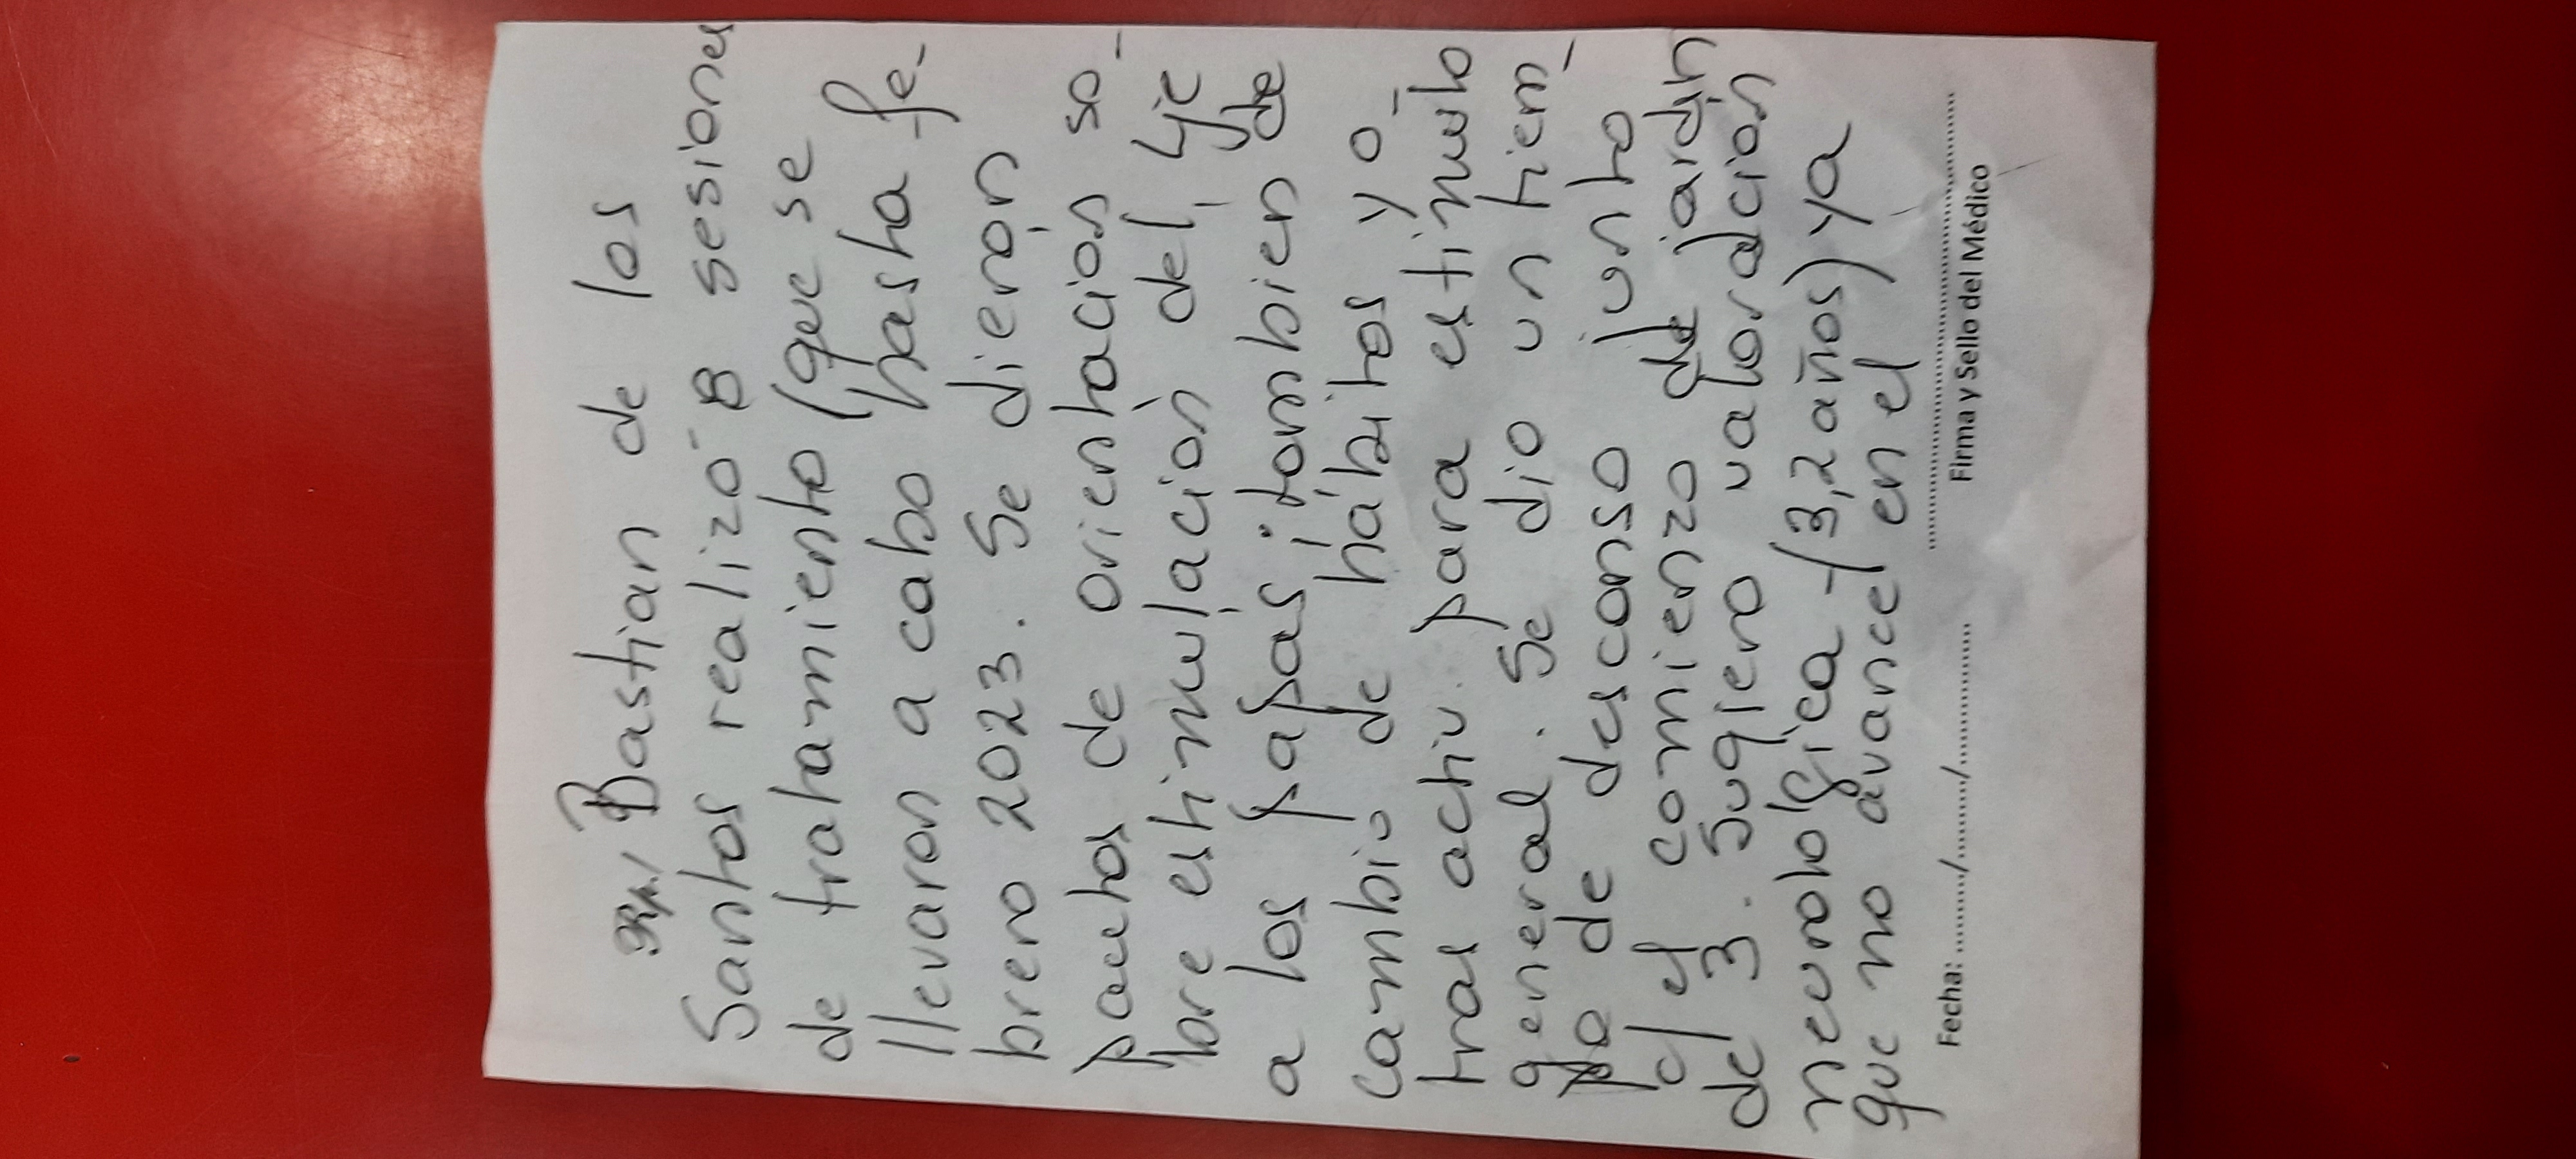 Rp/ Bastian de los
Santos realizó 8 sesiones
de tratamiento (que se
llevaron a cabo hasta fe-
brero 2023. Se dieron
pautas de orientación so-
bre estimulación del lje
a los papas, tambien de
cambio de hábitos y o-
tras activ. para estimulo
general. Se dio un tiem-
po de descanso junto
c/ el comienzo de jardín
de 3. Sugiero valoración
neurológica - (3,2 años) ya
que no avance en el
Fecha: ........../........../..........
Firma y Sello del Médico